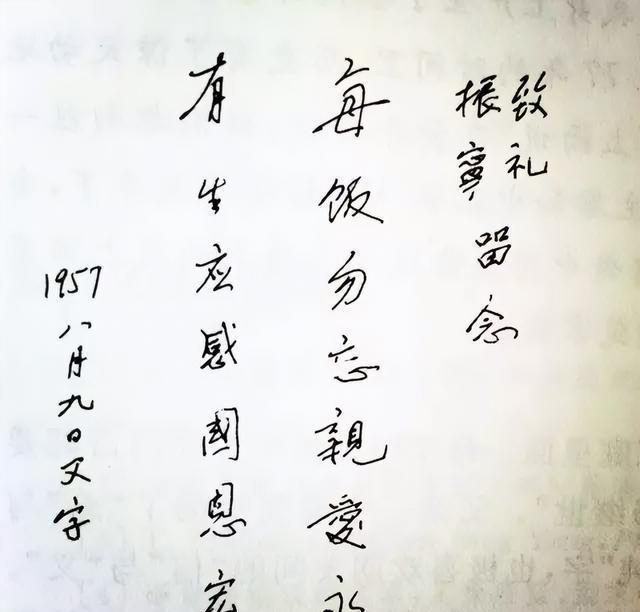 致礼
振寧留念
每飯勿忘親愛永
有生應感國恩宏
1957八月九日父字